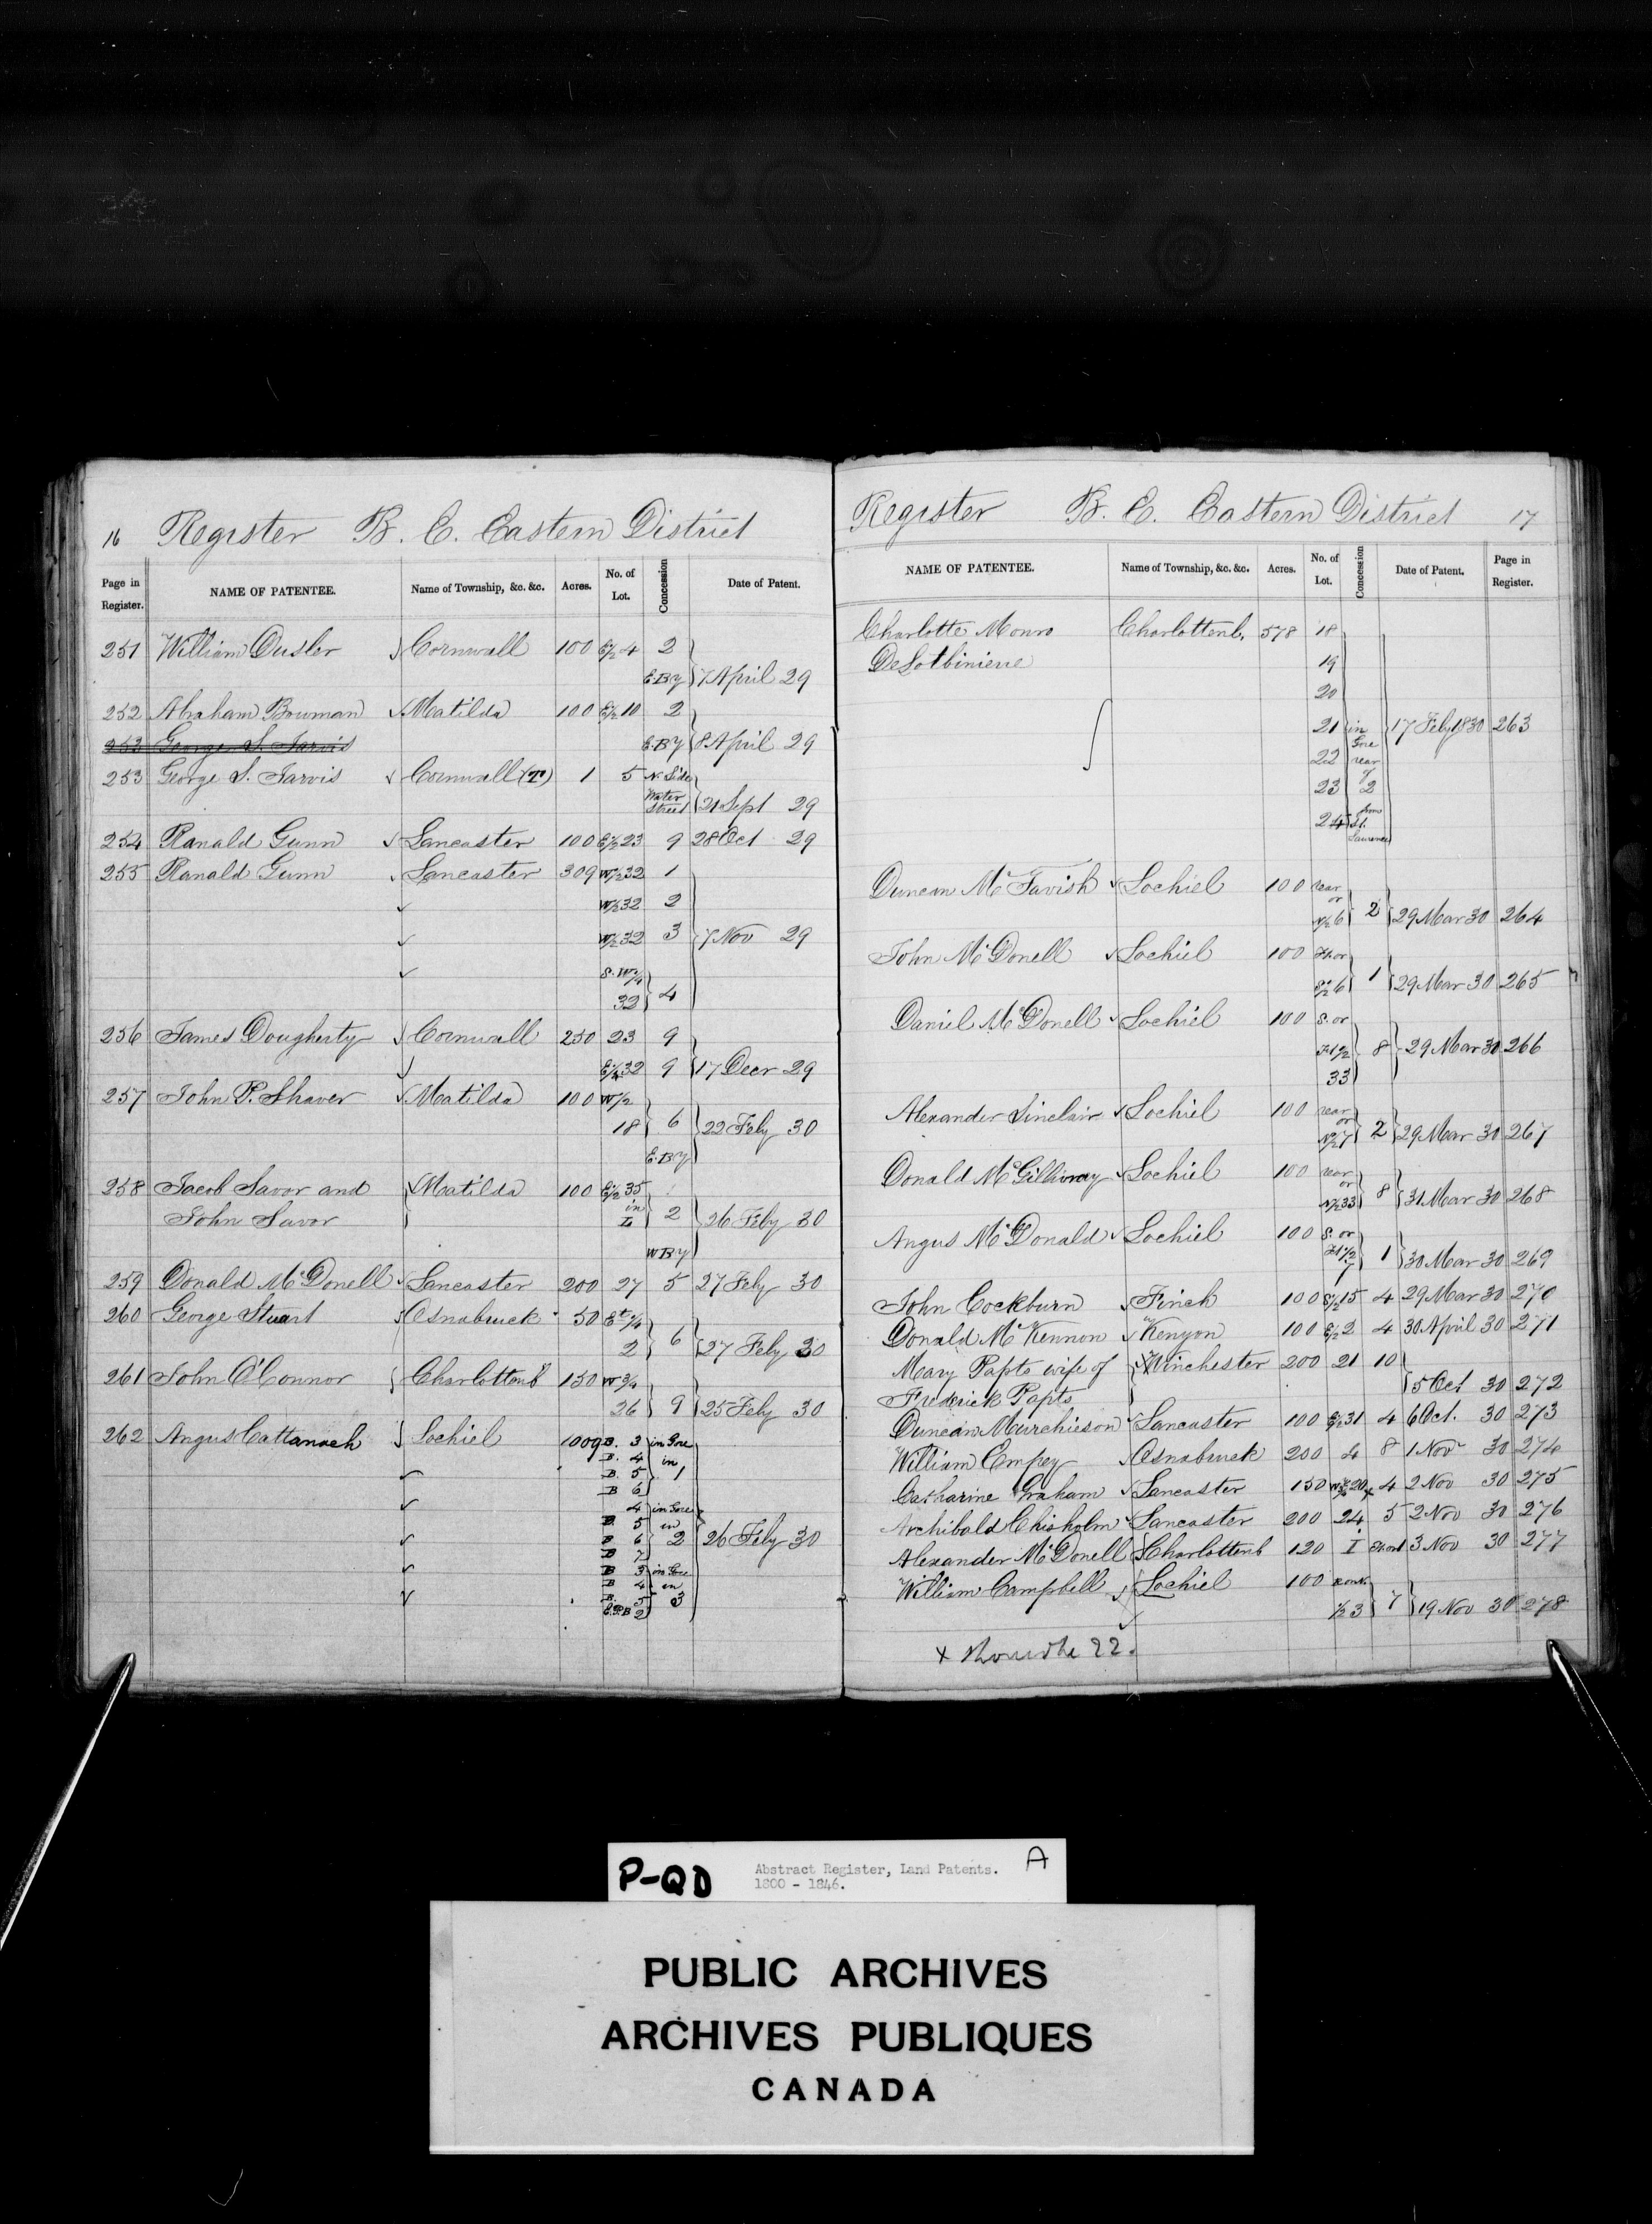 16 Register B. C. Eastern District
Page in Register. NAME OF PATENTEE. Name of Township, &c. &c. Acres. No. of Lot. Concession Date of Patent.
251 William Ousler Cornwall 100 E½ 4 2
E.By 7 April 29
252 Abraham Bouman Matilda 100 E½ 10 2
253 George S. Jarvis E.By 8 April 29
253 George S. Jarvis Cornwall (T) 1 5 N Side
Water Street 21 Sept 29
254 Ranald Gunn Lancaster 100 E½ 23 9 28 Oct 29
255 Ranald Gunn Lancaster 309 W½ 32 1
W½ 32 2
W½ 32 3 7 Nov 29
S.W¼
32 4
256 James Dougherty Cornwall 250 23 9
E¼ 32 9 17 Decr 29
257 John P. Shaver Matilda 100 W½
18 6 22 Feby 30
E.By
258 Jacob Savor and Matilda 100 E½ 35
in
John Savor L 2 26 Feby 30
W By
259 Donald McDonell Lancaster 200 27 5 27 Feby 30
260 George Stuart Osnabruck 50 Et ¼
2 6 27 Feby 30
261 John O'Connor Charlottenb 150 W ¾
26 9 25 Feby 30
262 Angus Cattanach Lochiel 1009 B. 3 in Gore
B. 4 in
B. 5 1
B 6
4 in Gore
B. 5 in
B 6 2 26 Feby 30
B 7
B 3 in Gore
B 4 in
B. 5 3
2
Register B. C. Eastern District 17
NAME OF PATENTEE. Name of Township, &c. &c. Acres. No. of Lot. Concession Date of Patent. Page in Register.
Charlotte Monro Charlottenb. 578 18
DeLotbiniere 19
20
21 in 17 Feby 1830 263
Gore
22 rear
of
23 2
from
24 St.
Laurence
Duncan McTavish Lochiel 100 rear
or
N½ 6 2 29 Mar 30 264
John McDonell Lochiel 100 Ft. or
S½ 6 1 29 Mar 30 265
Daniel McDonell Lochiel 100 S. or
Ft ½ 8 29 Mar 30 266
33
Alexander Sinclair Lochiel 100 rear
or
N½ 7 2 29 Mar 30 267
Donald McGillivray Lochiel 100 rear
or
N½ 33 8 31 Mar 30 268
Angus McDonald Lochiel 100 S. or
Ft ½
7 1 30 Mar 30 269
John Cockburn Finch 100 S½ 15 4 29 Mar 30 270
Donald McKennon Kenyon 100 E½ 2 4 30 April 30 271
Mary Papts wife of Winchester 200 21 10
Frederick Papts 5 Oct 30 272
Duncan Murchieson Lancaster 100 E½ 31 4 6 Oct. 30 273
William Empey Osnabruck 200 4 8 1 Nov 30 274
Catharine Graham Lancaster 150 W¾ 20 x 4 2 Nov 30 275
Archibald Chisholm Lancaster 200 24 5 2 Nov 30 276
Alexander McDonell Charlottenb 120 I 3 Nov 30 277
William Campbell Lochiel 100
½ 3 7 19 Nov 30 278
x Should be 22.
P-QD Abstract Register, Land Patents. A
1800 - 1846.
PUBLIC ARCHIVES
ARCHIVES PUBLIQUES
CANADA